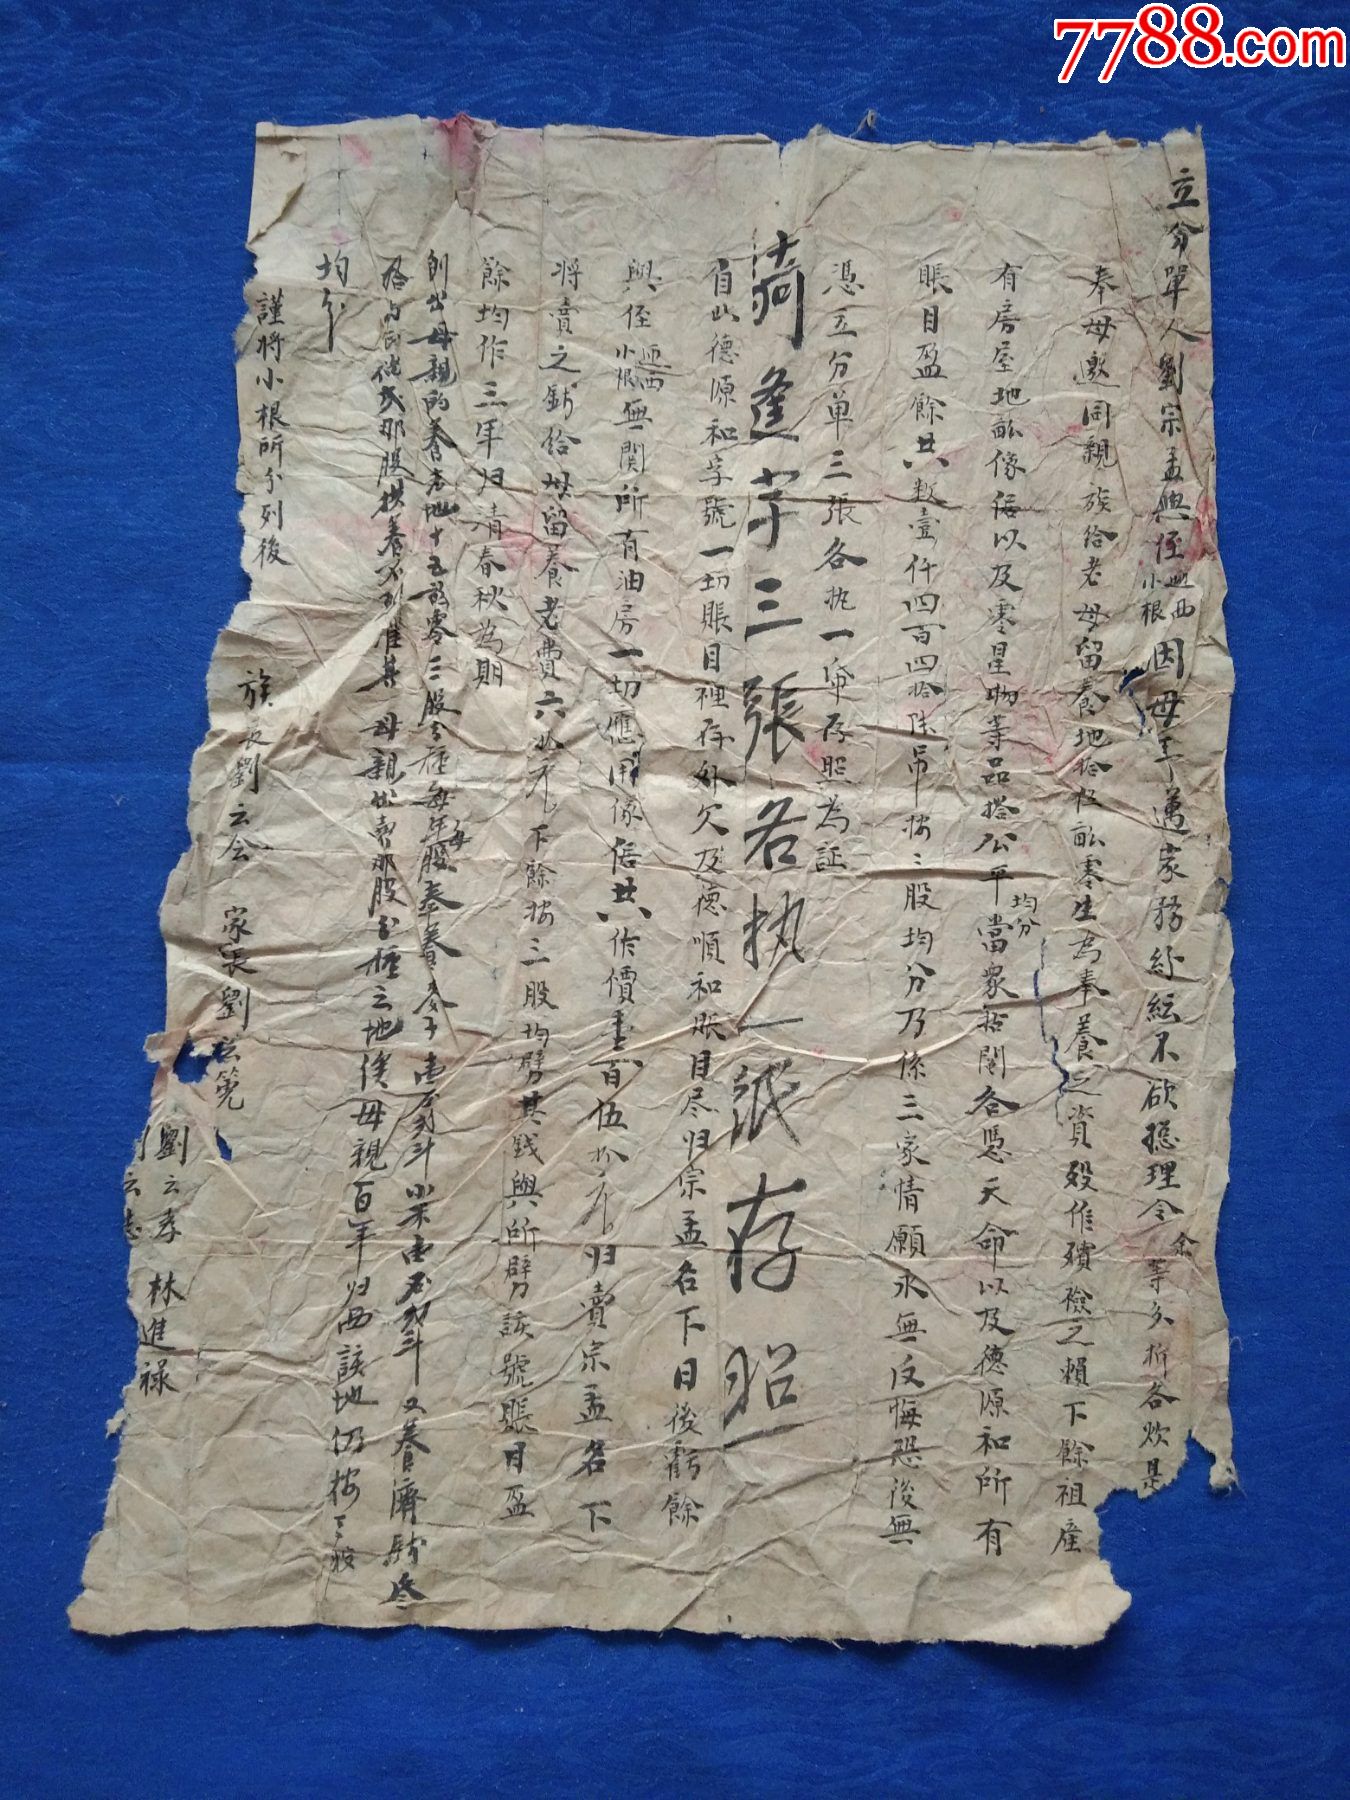 7788.com
立分單人劉宗孟與侄延西小根因母年邁家務紛紜不欲總理令余等分析各炊是
奉母邀同親族給老母留養地拾伍畝零生為奉養之資歿作殯殮之賴下餘祖產
有房屋地畝傢俱以及零星物等品搭公平均分當眾拈鬮各憑天命以及德源和所有
賬目盈餘共數壹仟四百四拾陆吊按三股均分乃係三家情願永無反悔恐後無
憑立分單三張各执一帋存照為証
逢字三張各执一紙存照
自此德源和字號一切賬目裡存外欠及德順和賬目尽归宗孟名下日後虧餘
與侄延西小根無関所有油房一切應用傢俱共作價壹百伍拾元归賣宗孟名下
將賣之錢給母留養老費六拾元下餘按三股均劈其錢與所劈該號賬目盈
餘均作三年归清春秋為期
創出母親的養老地十五畝零三股分種每年每股奉養麥子壹石弍斗小米壹石弍斗又養濟錢叁
母親出賣那股分種之地俟母親百年归西該地仍按三股
均分
謹將小根所分列後
族長劉云会 家長劉
劉云孝 林進禄
劉云志